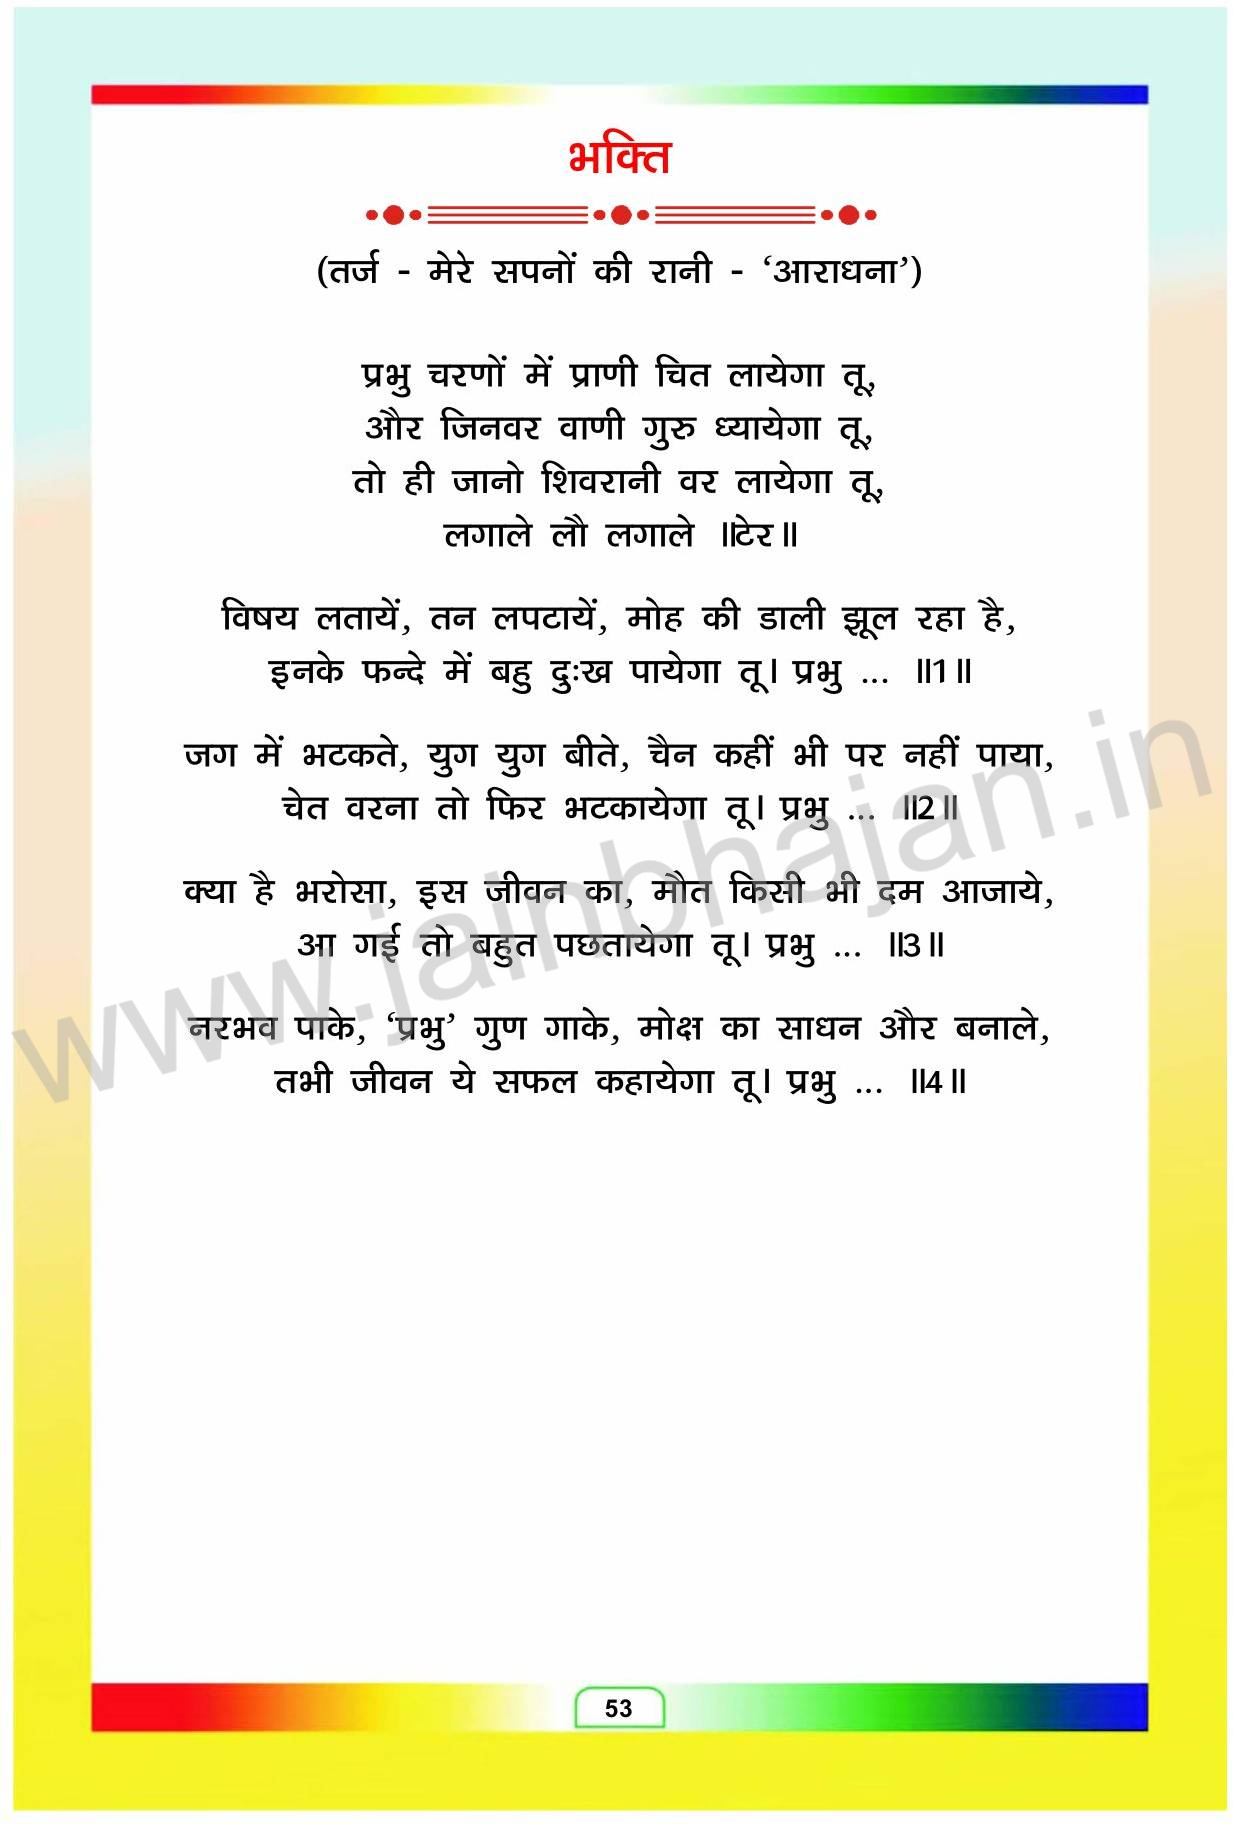 भक्ति
(तर्ज - मेरे सपनों की रानी - ‘आराधना’)
प्रभु चरणों में प्राणी चित लायेगा तू,
और जिनवर वाणी गुरु ध्यायेगा तू,
तो ही जानो शिवरानी वर लायेगा तू,
लगाले लौ लगाले ॥टेर॥
विषय लतायें, तन लपटायें, मोह की डाली झूल रहा है,
इनके फन्दे में बहु दुःख पायेगा तू। प्रभु ... ॥1॥
जग में भटकते, युग युग बीते, चैन कहीं भी पर नहीं पाया,
चेत वरना तो फिर भटकायेगा तू। प्रभु ... ॥2॥
क्या है भरोसा, इस जीवन का, मौत किसी भी दम आजाये,
आ गई तो बहुत पछतायेगा तू। प्रभु ... ॥3॥
नरभव पाके, ‘प्रभु’ गुण गाके, मोक्ष का साधन और बनाले,
तभी जीवन ये सफल कहायेगा तू। प्रभु ... ॥4॥
www.jainbhajan.in
53